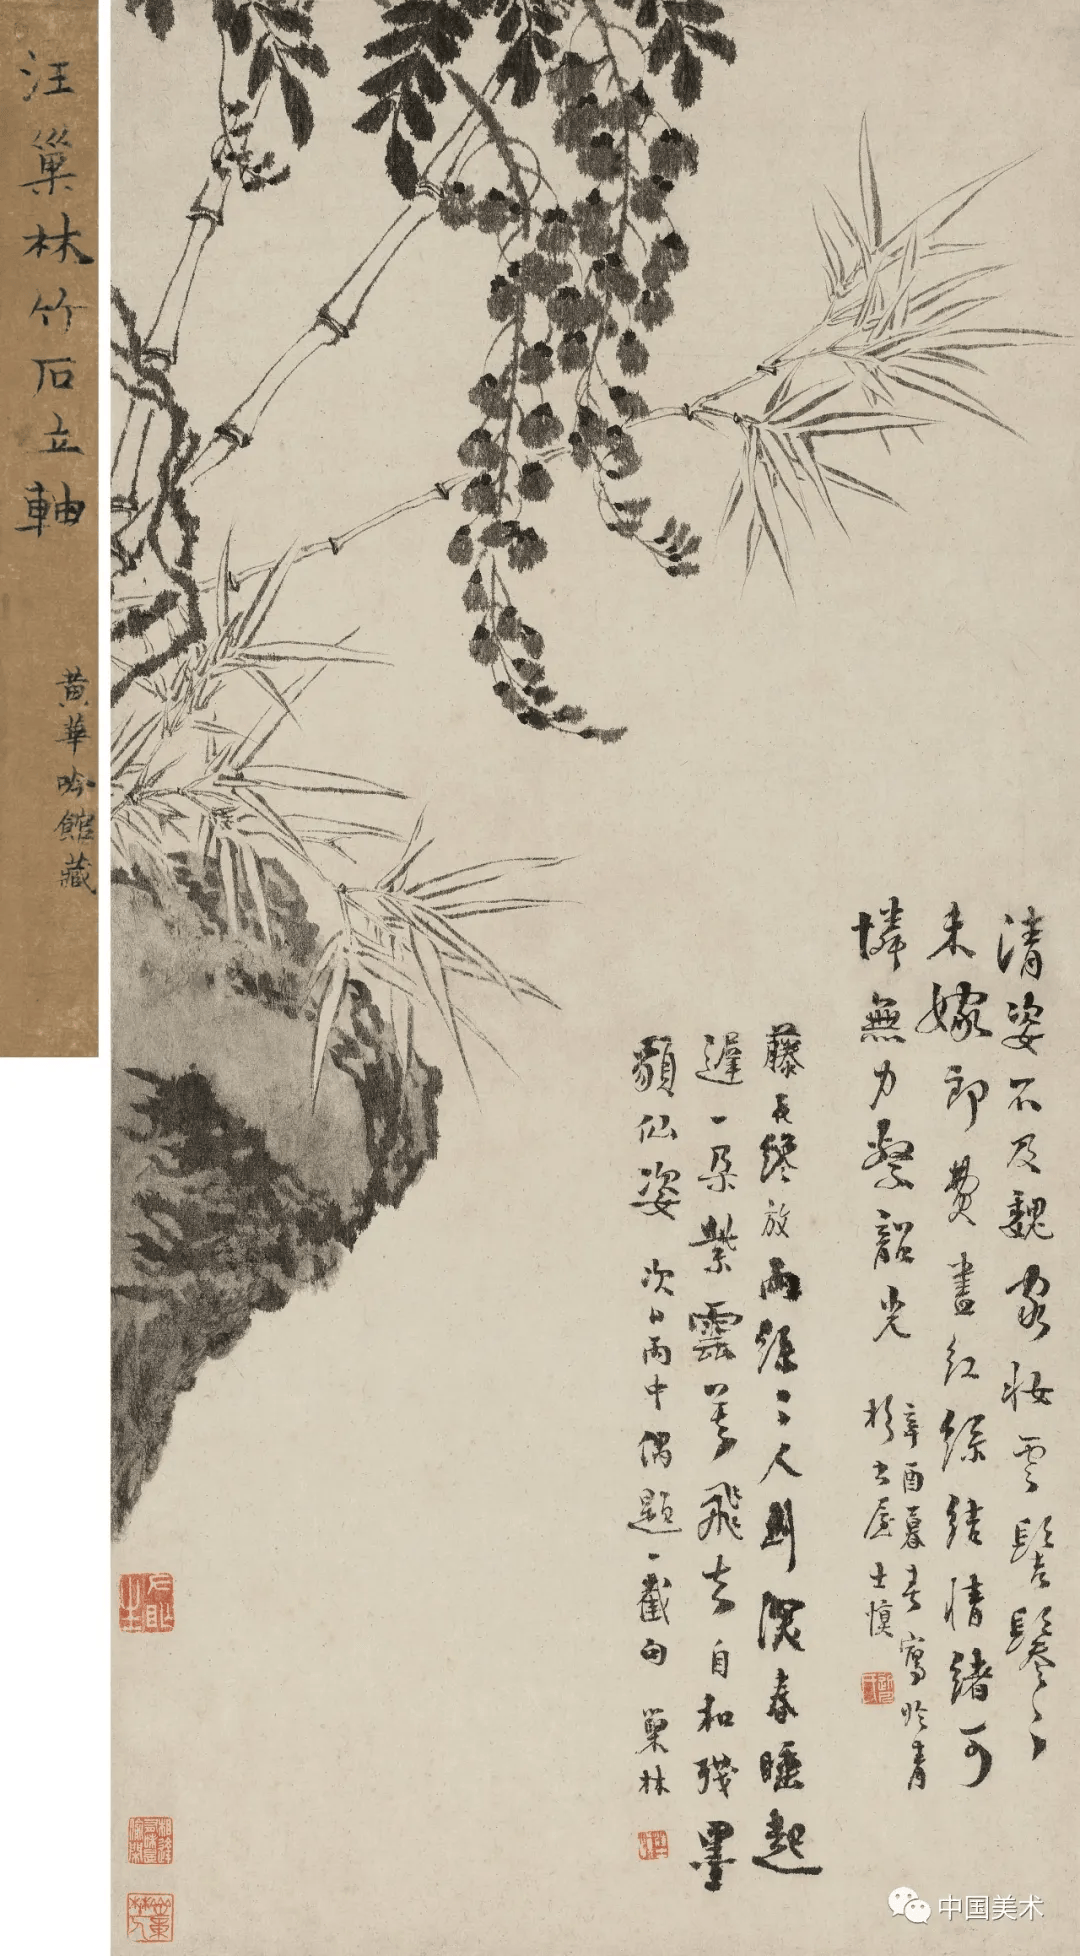 汪巢林竹石立軸
黄華吟館藏
清姿不及魏家妝雲髻鬖〻
未嫁郎費盡紅絲結情緒可
憐無力繫韶光
辛酉暮春寫於青
杉書屋士慎
藤花纔放雨絲〻人到深春睡起
遲一朵紫雲羞飛去自和殘墨
顯仙姿
次日雨中偶題一截句
巢林
中国美术